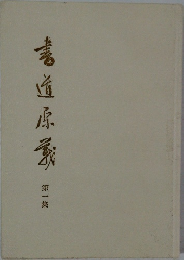 書道原義
第一集